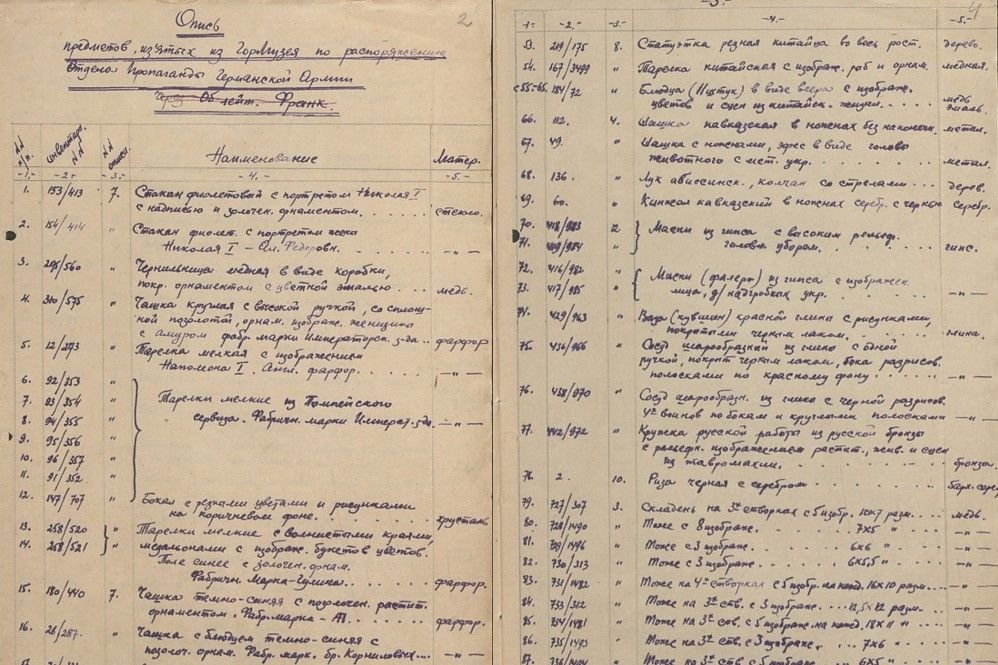 2
Опись
предметов, изъятых из Гормузея по распоряжению
Отдела Пропаганды Германской Армии
через Об. лейт. Франк.
№№ п/п. инвентарн. №№ №№ описи. Наименование Матер.
-1- -2- -3- -4- -5-
1. 153/413 7. Стакан фиолетовый с портретом Николая I
с надписью и золочен. орнаментом. стекло.
2. 154/414 " Стакан фиолет. с портретом жены
Николая I – Ал. Федоровн.
3. 295/560 " Чернильница медная в виде коробки,
покр. орнаментом с цветной эмалью медь.
4. 310/575 " Чашка круглая с высокой ручкой, со сплош-
ной позолотой, орнам. изображ. женщины
с амуром фабр. марки Императорск. з-да фарфор
5. 12/273 " Тарелка мелкая с изображением
Наполеона I. Англ. фарфор. — " —
6. 92/353 "
7. 93/354 " Тарелки мелкие из Помпейского
8. 94/355 " сервиза. Фабричн. марки Императ. з-да. — " —
9. 95/356 "
10. 96/357 "
11. 91/352 "
12. 147/707 " Бокал с резными цветами и рисунками
на коричневом фоне. хрусталь
13. 258/520 " Тарелки мелкие с волнистыми краями,
14. 258/521 " медальонами с изображ. букетов цветов.
Поле синее с золочен. орнам.
Фабричн. марка фарфор.
15. 180/440 7. Чашка темно-синяя с позолочен. растит.
орнаментом. Фабр. марка - АП. фарфор.
16. 26/287. " Чашка с блюдцем темно-синяя с
позолоч. орнам. Фабр. марк. бр. Корниловых — " —
4
-3-
-1- -2- -3- -4- -5-
53. 219/175 8. Статуэтка резная китайца во весь рост. дерево.
54. 167/3499 " Тарелка китайская с изображ. рыб и орнам. медная.
55-65. 184/72 " Блюдца (11 штук) в виде веера с изображ.
цветов и сцен из китайск. жизни. медь эмаль.
66. 112. 4. Шашка кавказская в ножнах без наконечн. метал.
67. 49. " Шашка с ножнами, эфес в виде головы
животного с мет. укр. метал.
68. 136. " Лук абиссинск., колчан со стрелами дерев.
69. 60. " Кинжал кавказский в ножнах серебр. с чернью серебр.
70. 418/983 12 Маски из гипса с высоким рельеф.
71. 419/984 " головн. убором. гипс.
72. 416/982 " Маски (фалеры) из гипса с изображен.
73. 417/985 " лица, д/надгробных укр. — " —
74. 429/963 " Ваза (кувшин) красной глины с рисунками,
покрытыми черным лаком. глина.
75. 436/966 " Сосуд шарообразный из глины с одной
ручкой, покрыт черным лаком, бока разрисов.
полосками по красному фону — " —
76. 438/970 " Сосуд шарообразн. из глины с черной разрисов.
4х воинов по бокам и круглыми полосками — " —
77. 442/972 " Кружка русской работы из русской бронзы
с рельефн. изображением растит., жив. и сцен
из мавромахии. бронза.
78. 2. 10. Риза черная с серебром
79. 727/307 3. Складень на 3х створках с 5 изобр. 10х7 разм. медь.
80. 728/1490 " Тоже с 8 изображ. 7х5 " — " —
81. 729/1496 " Тоже с 3 изображ. 6х6 " — " —
82. 730/313 " Тоже с 3 изображ. 6х5,5 " — " —
83. 731/1482 " Тоже на 4х створках с 5 изобр. на кажд. 16х10 разм. — " —
84. 733/312 " Тоже на 3х ств. с 3 изображ. 13,5х12 разм. — " —
85. 734/1481 " Тоже на 3х ств. с 5 изображ. на кажд. 18х11 " — " —
86. 735/1493 " Тоже на 3х ств. с 3 изображ. 7х6 " — " —
87. Тоже на 3х ств. с 5 изображ. 6х6 " — " —